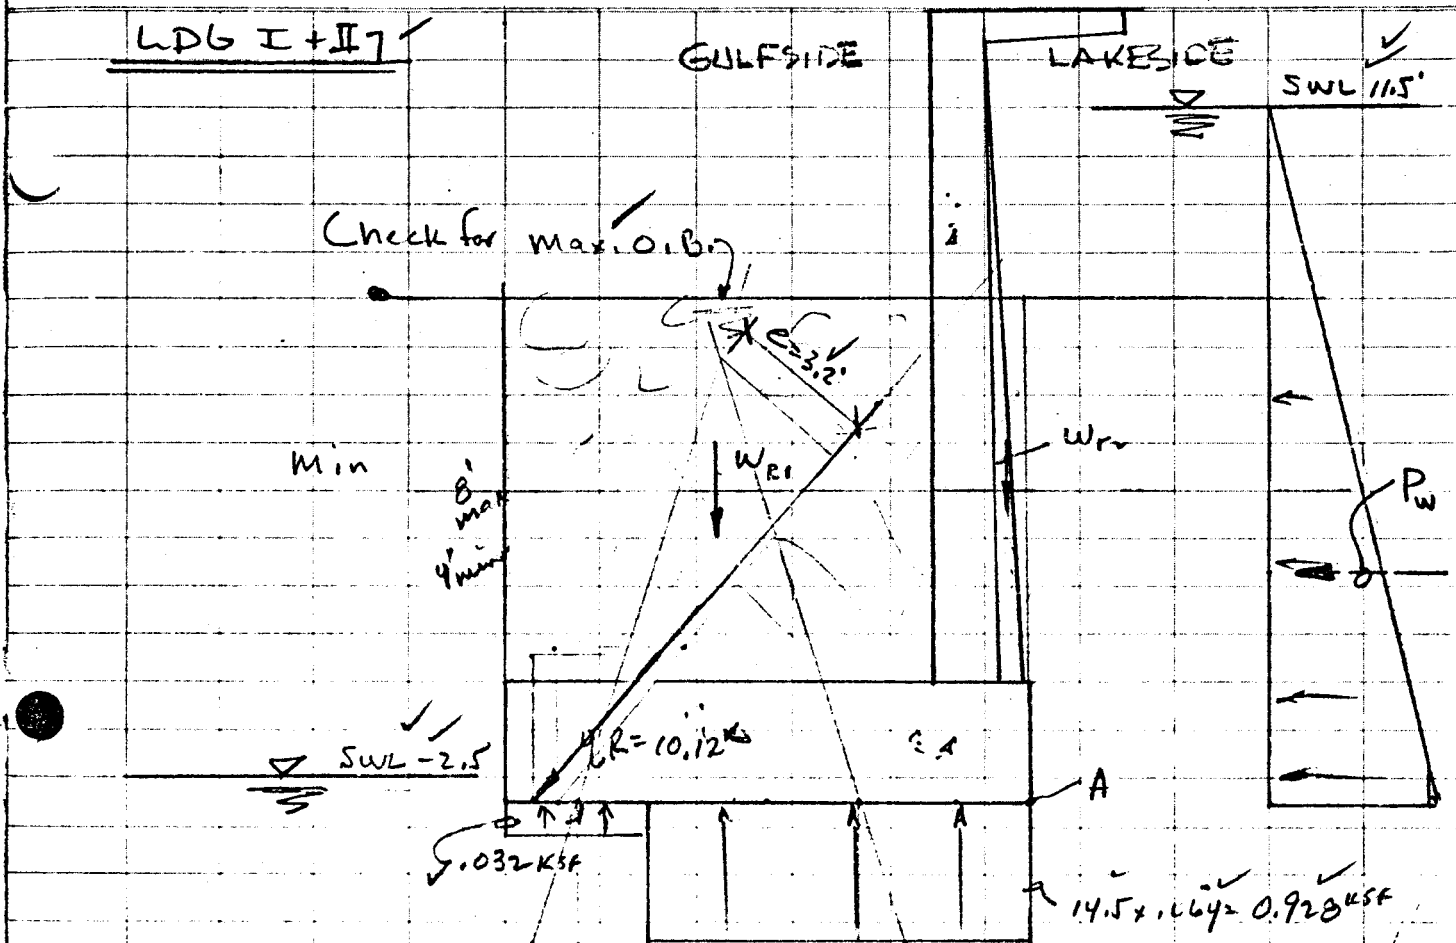 LDG I + II
GULFSIDE
LAKESIDE
SWL 11.5'
Check for max. O.B.
e=3.2'
Min
8' max
4' min
W
W
Pw
SWL -2.5
R=10.12 K
A
.032 KSF
14.5 x .064 = 0.928 KSF